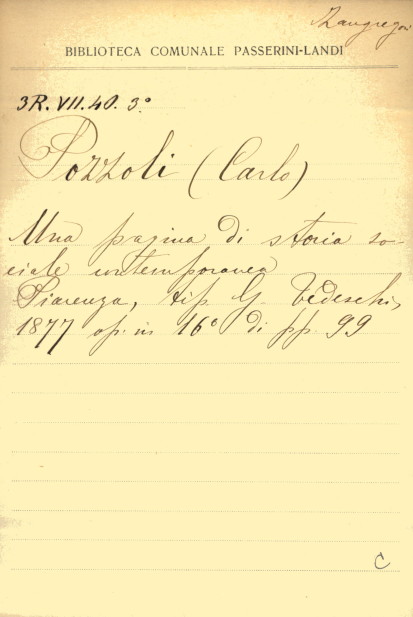 Zangregori
BIBLIOTECA COMUNALE PASSERINI-LANDI
3R. VII. 40. 3º
Pozzoli (Carlo)
Una pagina di storia so-
ciale contemporanea
Piacenza, tip. G. Tedeschi,
1877 op. in 16º di pp. 99
C